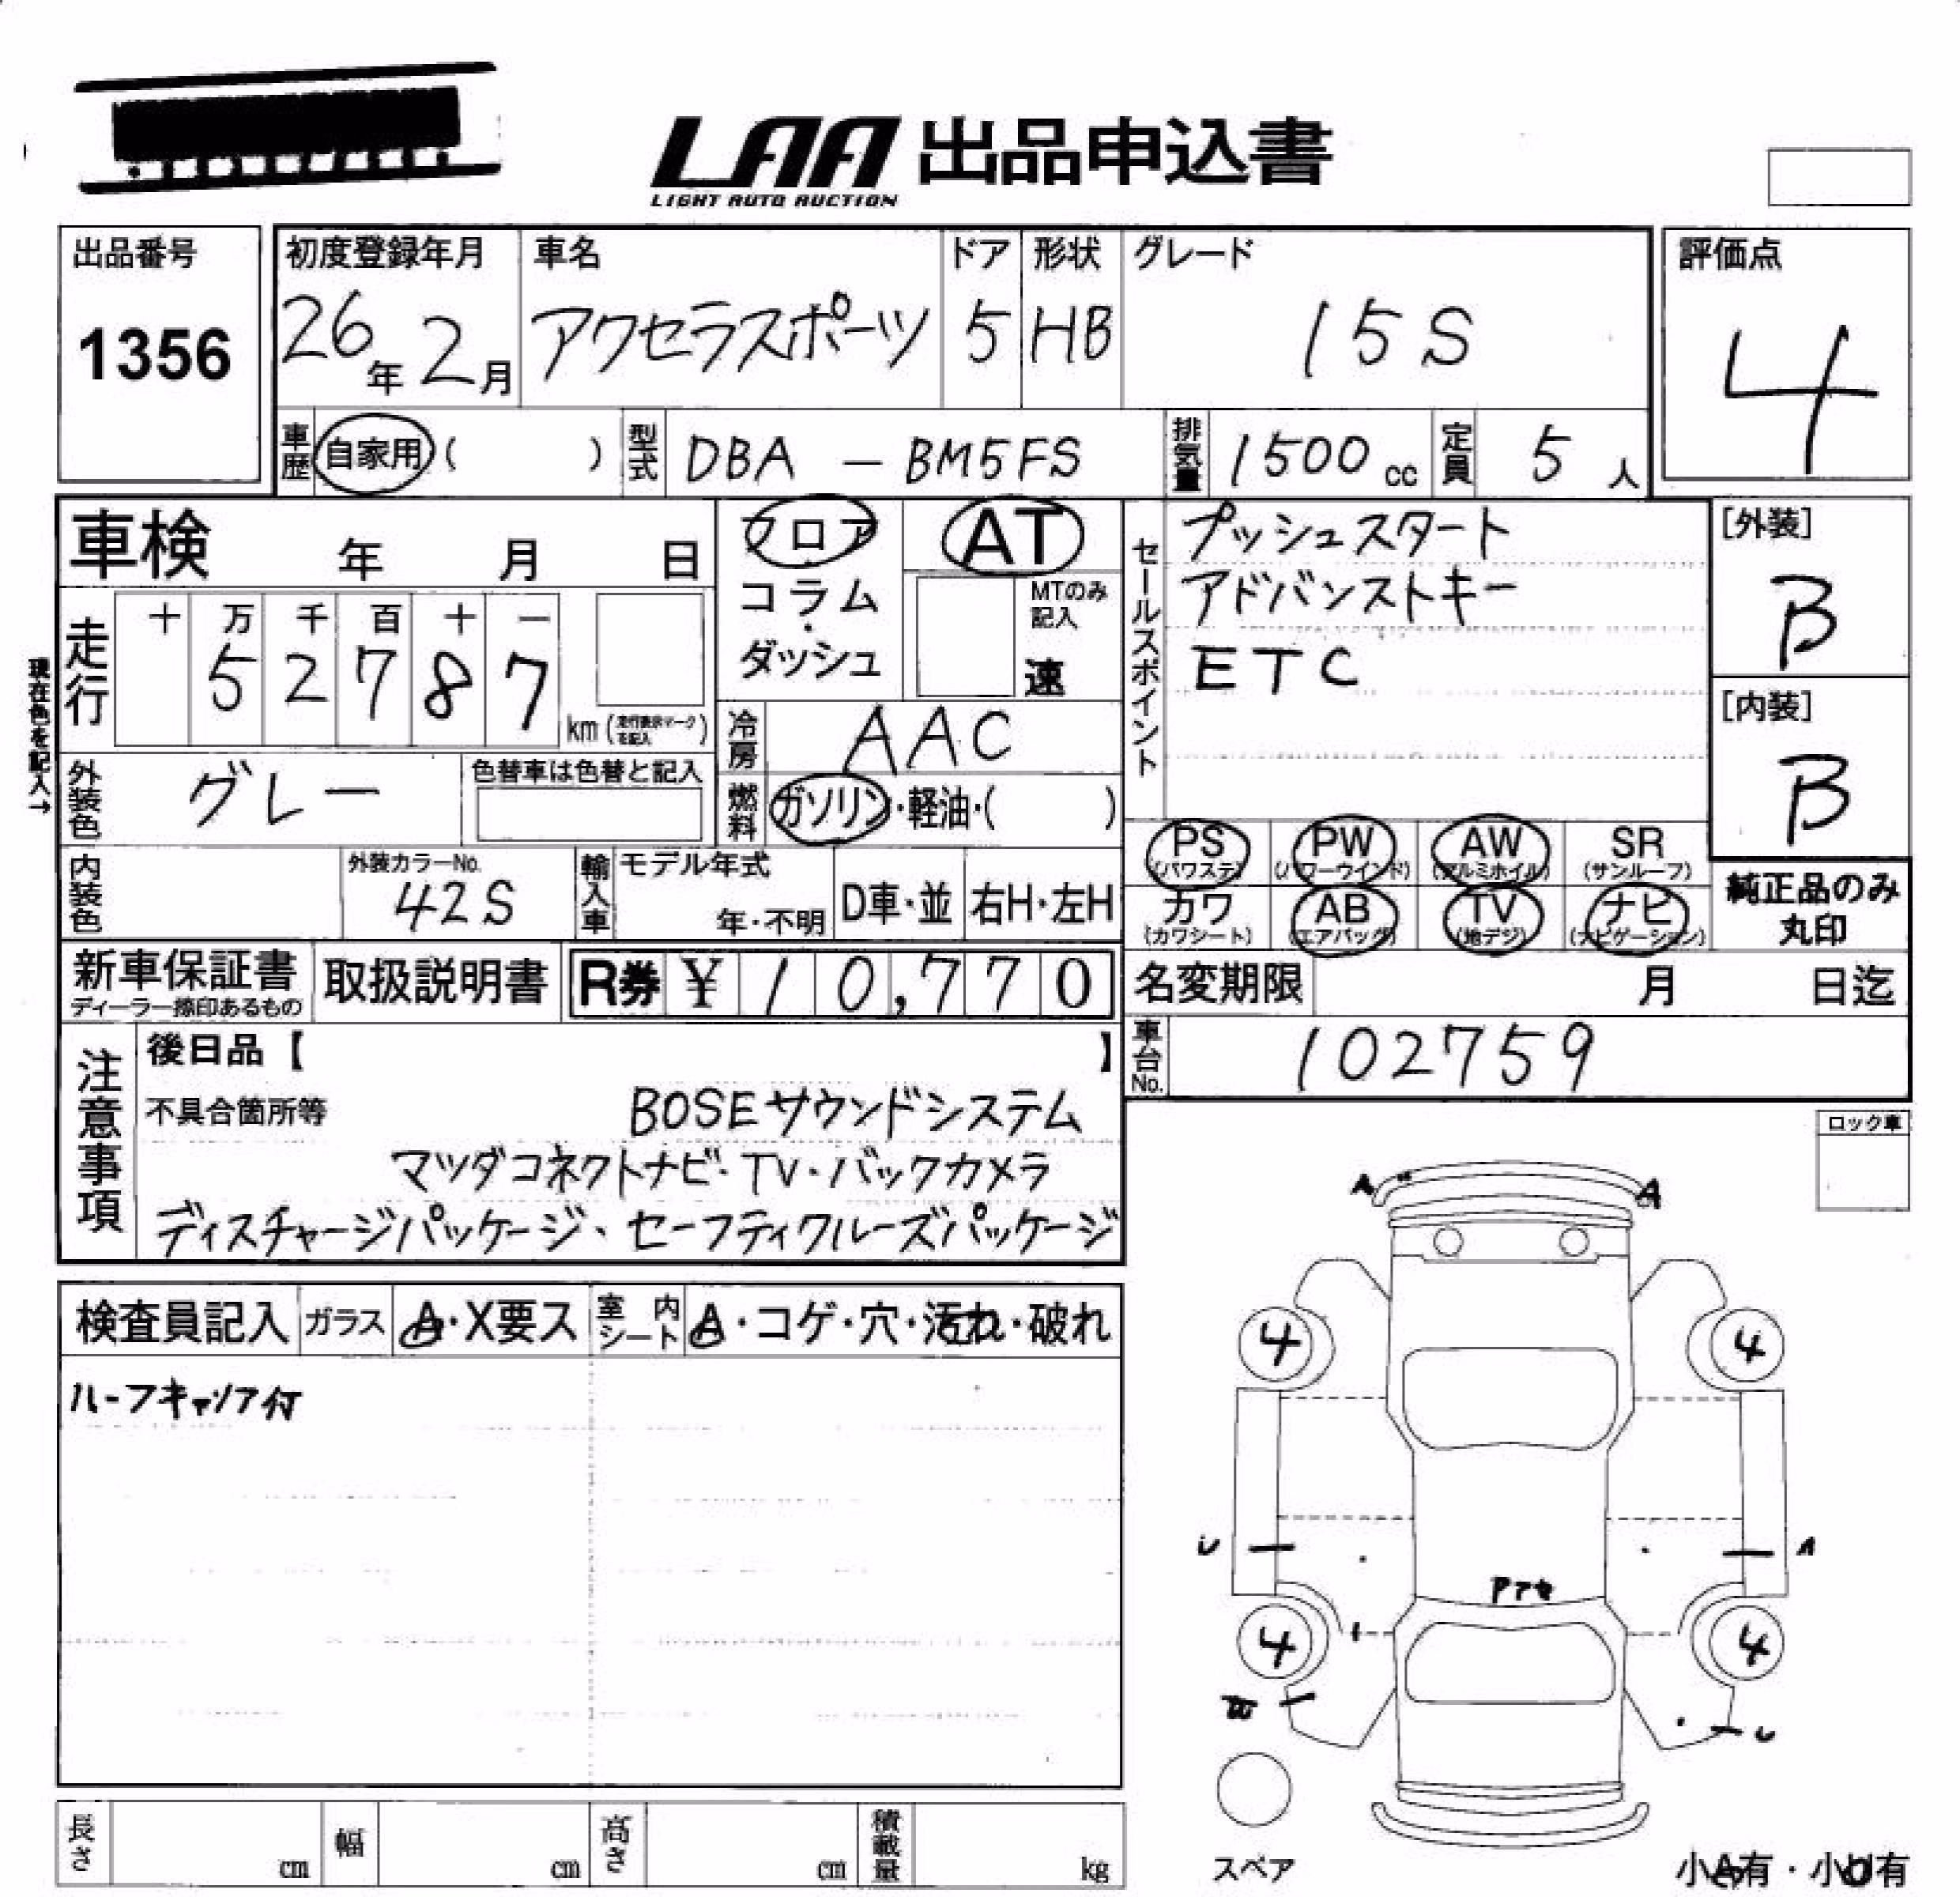 LAA 出品申込書
LIGHT AUTO AUCTION
出品番号
1356
初度登録年月
26年 2月
車名
アクセラスポーツ
ドア
5
形状
HB
グレード
15S
評価点
4
車歴
自家用 ( )
型式
DBA - BM5FS
排気量
1500 cc
定員
5 人
車検 年 月 日
フロア
コラム
・
ダッシュ
AT
MTのみ
記入
速
セールスポイント
プッシュスタート
アドバンストキー
ETC
[外装]
B
[内装]
B
現在色を記入→
走行
十 万 千 百 十 一
5 2 7 8 7
km (走行表示マークを記入)
冷房
AAC
外装色
グレー
色替車は色替と記入
燃料
ガソリン・軽油・( )
PS (パワステ)
PW (パワーウインド)
AW (アルミホイル)
SR (サンルーフ)
カワ (カワシート)
AB (エアバッグ)
TV (地デジ)
ナビ (ナビゲーション)
純正品のみ
丸印
内装色
外装カラーNo.
42S
輸入車
モデル年式
年・不明
D車・並
右H・左H
新車保証書
ディーラー捺印あるもの
取扱説明書
R券 ¥ 10,770
名変期限 月 日迄
車台No.
102759
注意事項
後日品【 】
不具合箇所等
BOSEサウンドシステム
マツダコネクトナビ・TV・バックカメラ
ディスチャージパッケージ、セーフティクルーズパッケージ
ロック車
A A
4 4
検査員記入
ガラス
A・X要ス
室内シート
A・コゲ・穴・汚れ・破れ
ルーフキャリア付
U A
4 4
W U
スペア
小A有・小U有
長さ cm
幅 cm
高さ cm
積載量 kg